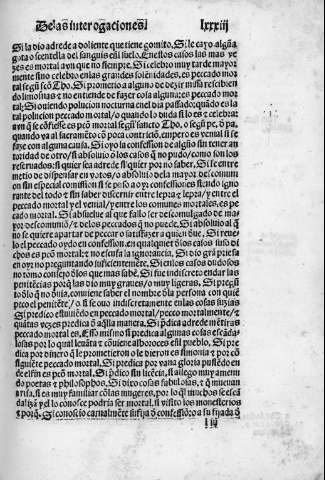 De las interogaciones lxxxiij
Si la dio adrede a doliente que tiene gomito. Si le cayo algũa
gota o scentella del sanguis en l suelo. En estos casos las mas ve
zes es mortal avn que no siempre. Si celebro muy tarde mayor
mente sino celebro en las grandes solẽnidades, es peccado mor
tal segũ scõ Tho. Si prometio a alguno de dezir missa rescibien
do limosnas τ no entiende de fazer cosa alguna: es peccado mor
tal; Si ouiendo polucion nocturna en el dia passado: quãdo es la
tal polucion peccado mortal, o quando lo duda si lo es τ celebra:
avn q̃ se cõfiesse es pcc̃o mortal segũ sancto Tho. o segũ pe. õ pa.
quando va al sacramẽto cõ poca contriciõ, empero es venial si se
faze con alguna causa. Si oyo la confession de algũo sin tener au
toridad de otro, si absoluio õ los casos q̃ no pudo, como son los
reseruados: si quier sea adrede si quier por no saber. Si se entre
metio de dispensar en votos, o absoluio dela mayor de comuni
on sin especial comission si se puso a oyr confessiones siendo igno
rante del todo τ sin saber discernir entre lepra τ lepra, y entre el
peccado mortal y el venial, y entre los comunes mortales, es pec
cado mortal. Si absuelue al que fallo ser descomulgado de ma
yor descomuniõ, τ de los peccados q̃ no puede. Si absoluio al q̃
no se quiere apartar de peccar o satisfazer a quien dive. Si reue
lo el peccado oydo en confession, en qualquier õlos casos suso di
chos es pcc̃o mortal: τ no escusa la ignorancia. Si dio grã priesa
en oyr no preguntando suficientemẽte. Si en los casos dudosos
no tomo consejo õlos que mas sabẽ. Si fue indiscreto en dar las
penitẽcias porq̃ las dio muy graues, o muy ligeras. Si pregũ
to õlo q̃ no deuia, conuiene saber el nombre dla persona con quiẽ
peco el penitẽte, o si se ouo indiscretamente en las cosas suzias
Si predico estuuiẽdo en peccado mortal, pecco mortalmente, τ
quãtas vezes predica õ aq̃lla manera. Si p̃dica adrede mẽtiras
peccado mortal es. Esso mismo si predica algunas cosas escãda
losas por lo qual leuãta τ cõmueue alboroces en l pueblo. Si pre
dica por dinero q̃ le prometieron o le dieron es simonia τ por cõ
siguiẽte peccado mortal. Si predica por vana gloria pusiẽdo en
de el fin es pcc̃o mortal. Si p̃dico sin licẽcia, si alego muy amenu
do poetas τ philosophos. Si dixo cosas fabulosas, τ q̃ mueuan
a risa. si es muy familiar cõlas mugeres, por lo q̃l muchos se escã
dalizã y el lo conosce podria ser mortal. si visito los monesterios
τ porq̃. Si conoscio carnalmẽte su fija õ confessiõ o a su fijada õ
l iij